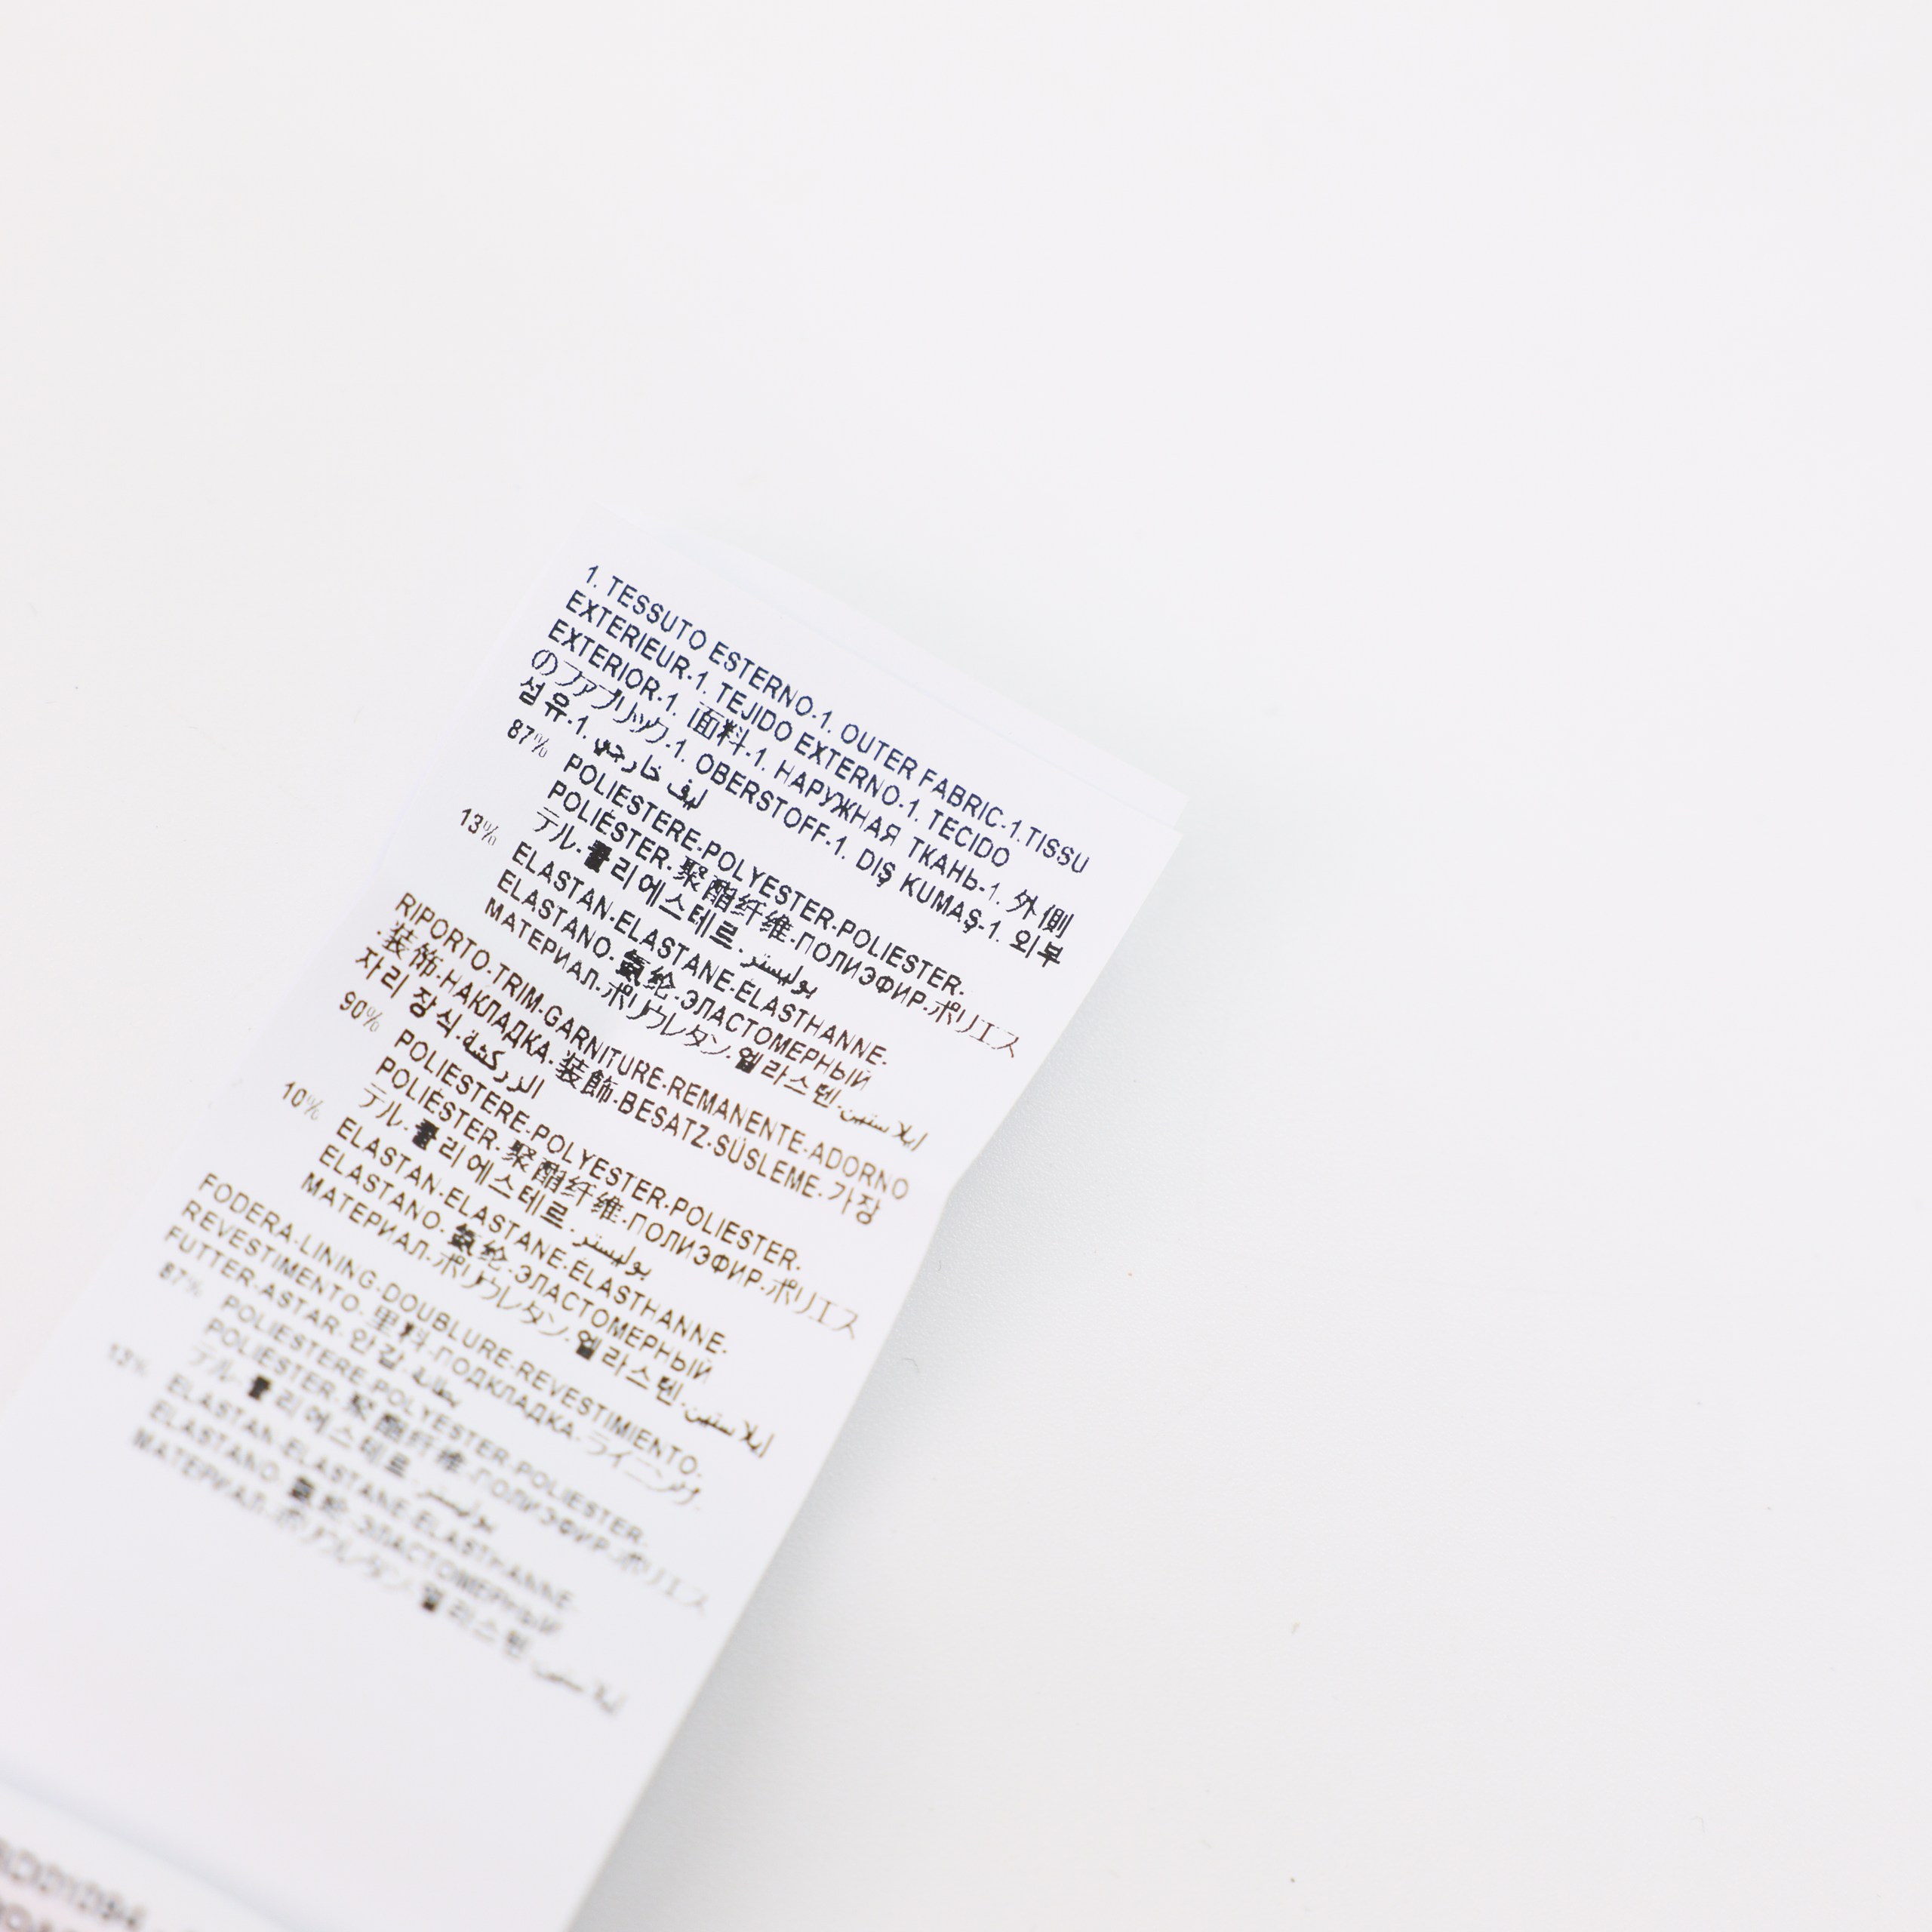 1. TESSUTO ESTERNO-1. OUTER FABRIC-1.TISSU
EXTERIEUR-1. TEJIDO EXTERNO-1. TECIDO
EXTERIOR-1. 面料-1. НАРУЖНАЯ ТКАНЬ-1. 外側
のファブリック-1. OBERSTOFF-1. DIŞ KUMAŞ-1. 외부
섬유-1. ليف خارجي
87% POLIESTERE-POLYESTER-POLIESTER-
POLIÉSTER-聚酯纤维-ПОЛИЭФИР-ポリエス
テル-폴리에스테르-بوليستر
13% ELASTAN-ELASTANE-ÉLASTHANNE-
ELASTANO-氨纶-ЭЛАСТОМЕРНЫЙ
МАТЕРИАЛ-ポリウレタン-엘라스텐-إيلاستين
RIPORTO-TRIM-GARNITURE-REMANENTE-ADORNO
-装饰-НАКЛАДКА-装飾-BESATZ-SÜSLEME-가장
자리 장식-الزركشة
90% POLIESTERE-POLYESTER-POLIESTER-
POLIÉSTER-聚酯纤维-ПОЛИЭФИР-ポリエス
テル-폴리에스테르-بوليستر
10% ELASTAN-ELASTANE-ÉLASTHANNE-
ELASTANO-氨纶-ЭЛАСТОМЕРНЫЙ
МАТЕРИАЛ-ポリウレタン-엘라스텐-إيلاستين
FODERA-LINING-DOUBLURE-REVESTIMIENTO-
REVESTIMENTO-里料-ПОДКЛАДКА-ライニング-
FUTTER-ASTAR-안감-بطانة
87% POLIESTERE-POLYESTER-POLIESTER-
POLIÉSTER-聚酯纤维-ПОЛИЭФИР-ポリエス
テル-폴리에스테르-بوليستر
13% ELASTAN-ELASTANE-ÉLASTHANNE-
ELASTANO-氨纶-ЭЛАСТОМЕРНЫЙ
МАТЕРИАЛ-ポリウレタン-엘라스텐-إيلاستين